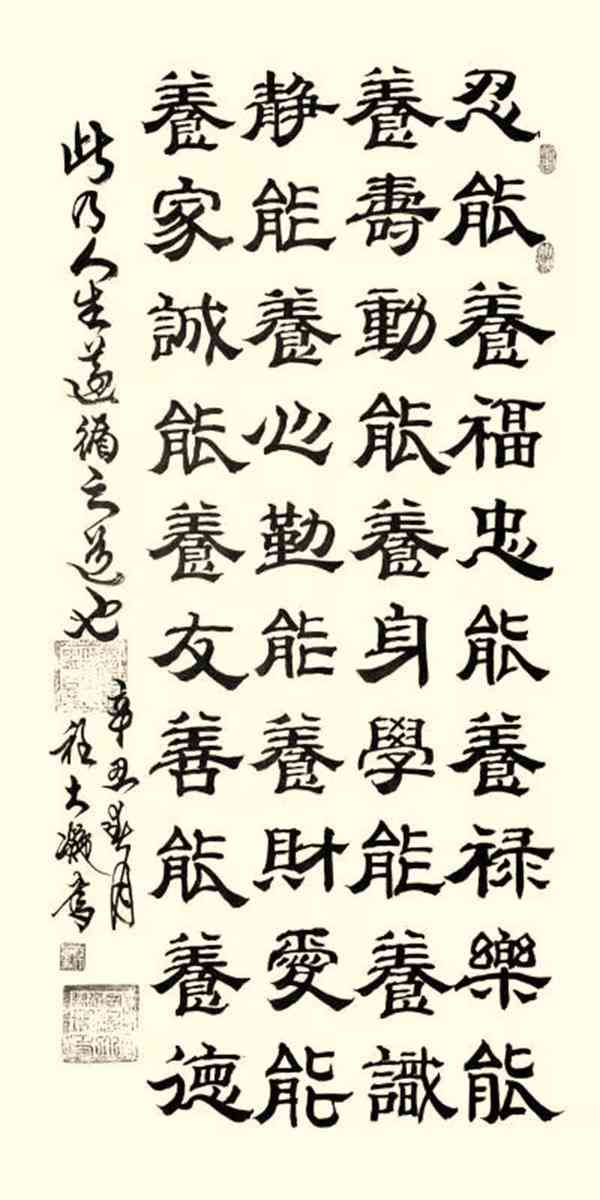 忍能養福忠能養禄樂能
養壽動能養身學能養識
静能養心勤能養財愛能
養家誠能養友善能養德
此乃人生遵循之道也
辛丑春月